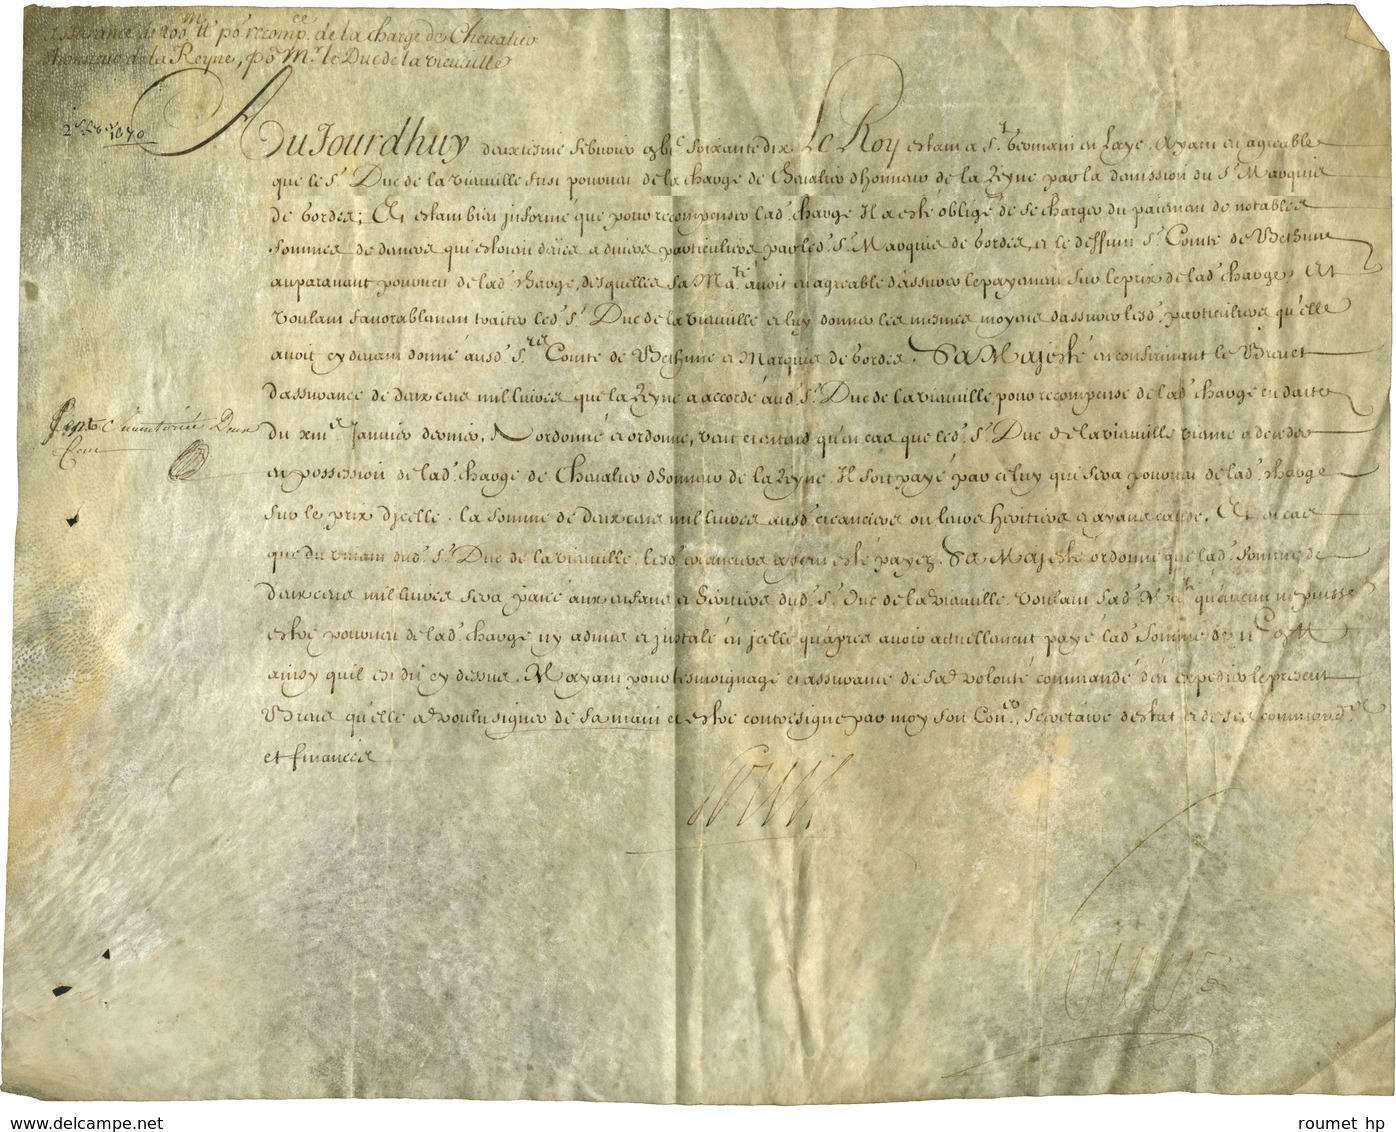 assurance de 200 m ll po.r recomp.ce de la charge de Chevalier
dhonneur de la Reyne, po.r M.r le Duc de la vieuville
2.e feb.er 1670
AuJourdhuy deuxiesme febvrier gbjc soixante dix Le Roy estant a S.t Germain en Laye, Ayant eu agreable
que le S.r Duc de la vieuville fust pourveu de la charge de Chevalier dhonneur de la Reyne par la demission du S.r Marquis
de Gordes; Et estant bien jnformé que pour recompenser lad. charge Il a esté obligé de se charger du paiement de notables
sommes de deniers qui estoient deües a divers particuliers par led. S.r Marquis de Gordes, et le deffunt S.r Comte de Bethune
auparavant pourveu de lad. charge, desquelles Sa Ma.té avoit eu agreable d'assurer le payement sur le prix de lad. charge, Et
voulant favorablement traiter led. S.r Duc de la vieuville et luy donner les mesmes moyens dassurer lesd. particuliers qu'elle
avoit cy devant donné ausd. S.rs Comte de Bethune et Marquis de Gordes, Sa Majesté en confirmant le Brevet
dassurance de deux cens mil livres que la Reyne a accordé aud. S.r Duc de la vieuville pour recompense de lad. charge en datte
du xiii.e Janvier dernier, A ordonné et ordonne, veut et entend qu'en cas que led. S.r Duc de la vieuville vienne a deceder
en possession de lad. charge de Chevalier dhonneur de la Reyne, Il soit payé par celuy qui sera pourveu de lad. charge
sur le prix d'jcelle la somme de deux cens mil livres ausd. creanciers ou leurs heritiers et ayans cause, Et en cas
que du vivant dud. S.r Duc de la vieuville, lesd. creanciers ayent esté payez, Sa Majesté ordonne que lad. somme de
deux cens mil livres sera paiée aux enfans et heritiers dud. S.r Duc de la vieuville, voulant Sad. Ma.té qu'aucun ne puisse
estre pourveu de lad. charge ny admis et jnstalé en jcelle qu'apres avoir actuellement payé lad. somme de ii C M ll
ainsy quil est dit cy dessus, M'ayant pour tesmoignage et assurance de sa volonté commandé d'en expedier le present
Brevet qu'elle a voulu signer de sa main et estre contresigné par moy son Con.er Secretaire destat et de ses commend.s
et finances
Louis
roumet hp
www.delcampe.net